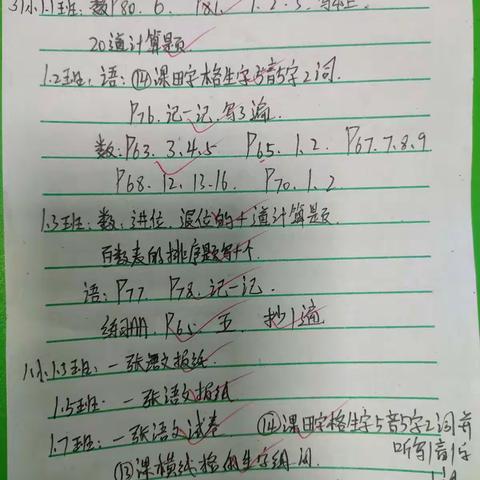 3小1.1班:数P80. 6. P81. 1. 2. 3. 写本上.
20道计算题
1.2班:语:⑭课田字格生字5音5字2词.
P76.记一记.写3遍.
数:P63. 3.4.5 P65. 1.2. P67.7.8.9
P68. 12. 13-16. P70.1.2
1.3班:数:进位.退位的十道计算题.
百数表的排序题写十个.
语:P77. P78.记一记.
练习册.P65. 五. 抄1遍
1小1.3班:一张语文报纸.
1.5班:一张语文报纸
1.7班:一张语文试卷 ⑭课田字格生字5音5字2词并
听写1音1字
⑬课横线格的生字组词.